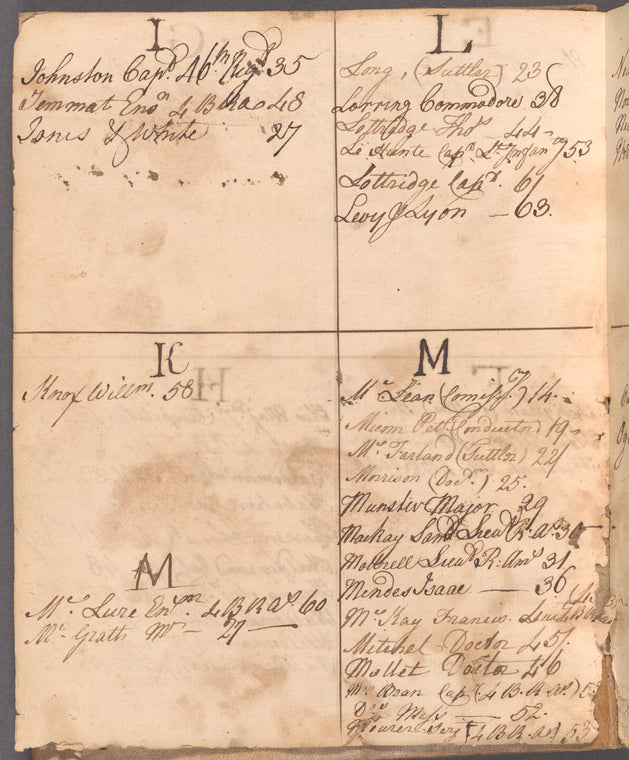 I
Johnston Capt. 46th Regt. 35
Jemmat Ensn 4 B Ra 48
Janis & White 27
L
Long, (Suttler) 23
Lorring Commodore 38
Lottridge Thos. 44
Le Hunte Capn. Lt. Infan 53
Lottridge Capt. 61
Levy & Lyon — 63.
K
Knox Willm. 58
M
Mc Lure Ensn. 4 B R As. 60
Mc Grath Mr — 27 —
M
Mc Lean (Comissy.) 14.
Micom Pet (Conductor) 19
Mc Farland (Suttler) 22
Morrison (Do.) 25.
Munster Major 29
MacKay Saml. Lieut. R. As. 30
Mottrell Lieut. R: Ams 31
Mendes Isaac — 36
Mc Kay Francis. Lieut 4 B R As
Mitchel Doctor 45
Mallet Doctor 46
Mc Bean Capt. (4 B. R As.) 53
Do. Mess — 52.
Serjt. 4 B R. As.) 53